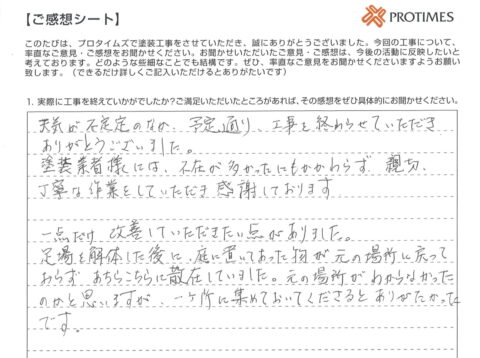 【ご感想シート】
PROTIMES
このたびは、プロタイムズで塗装工事をさせていただき、誠にありがとうございました。今回の工事について、
率直なご意見・ご感想をお聞かせください。お聞かせいただいたご意見・ご感想は、今後の活動に反映したいと
考えております。どのような些細なことでも結構です。ぜひ、率直なご意見をお聞かせくださいますようお願い
致します。（できるだけ詳しくご記入いただけるとありがたいです）
1. 実際に工事を終えていかがでしたか？ご満足いただいたところがあれば、その感想をぜひ具体的にお聞かせください。
天気が不定定のなか、予定通り、工事を終わらせていただき
ありがとうございました。
塗装業者様には、不在が多かったにもかかわらず 親切、
丁寧な作業をしていただき 感謝しております
一点だけ 改善していただきたい点がありました。
足場を解体した後に、庭に置いてあった物が元の場所に戻って
おらず あちらこちらに散在していました。元の場所がわからなかった
のかと思いますが、一ヶ所に集めておいてくださるとありがたかった
です。